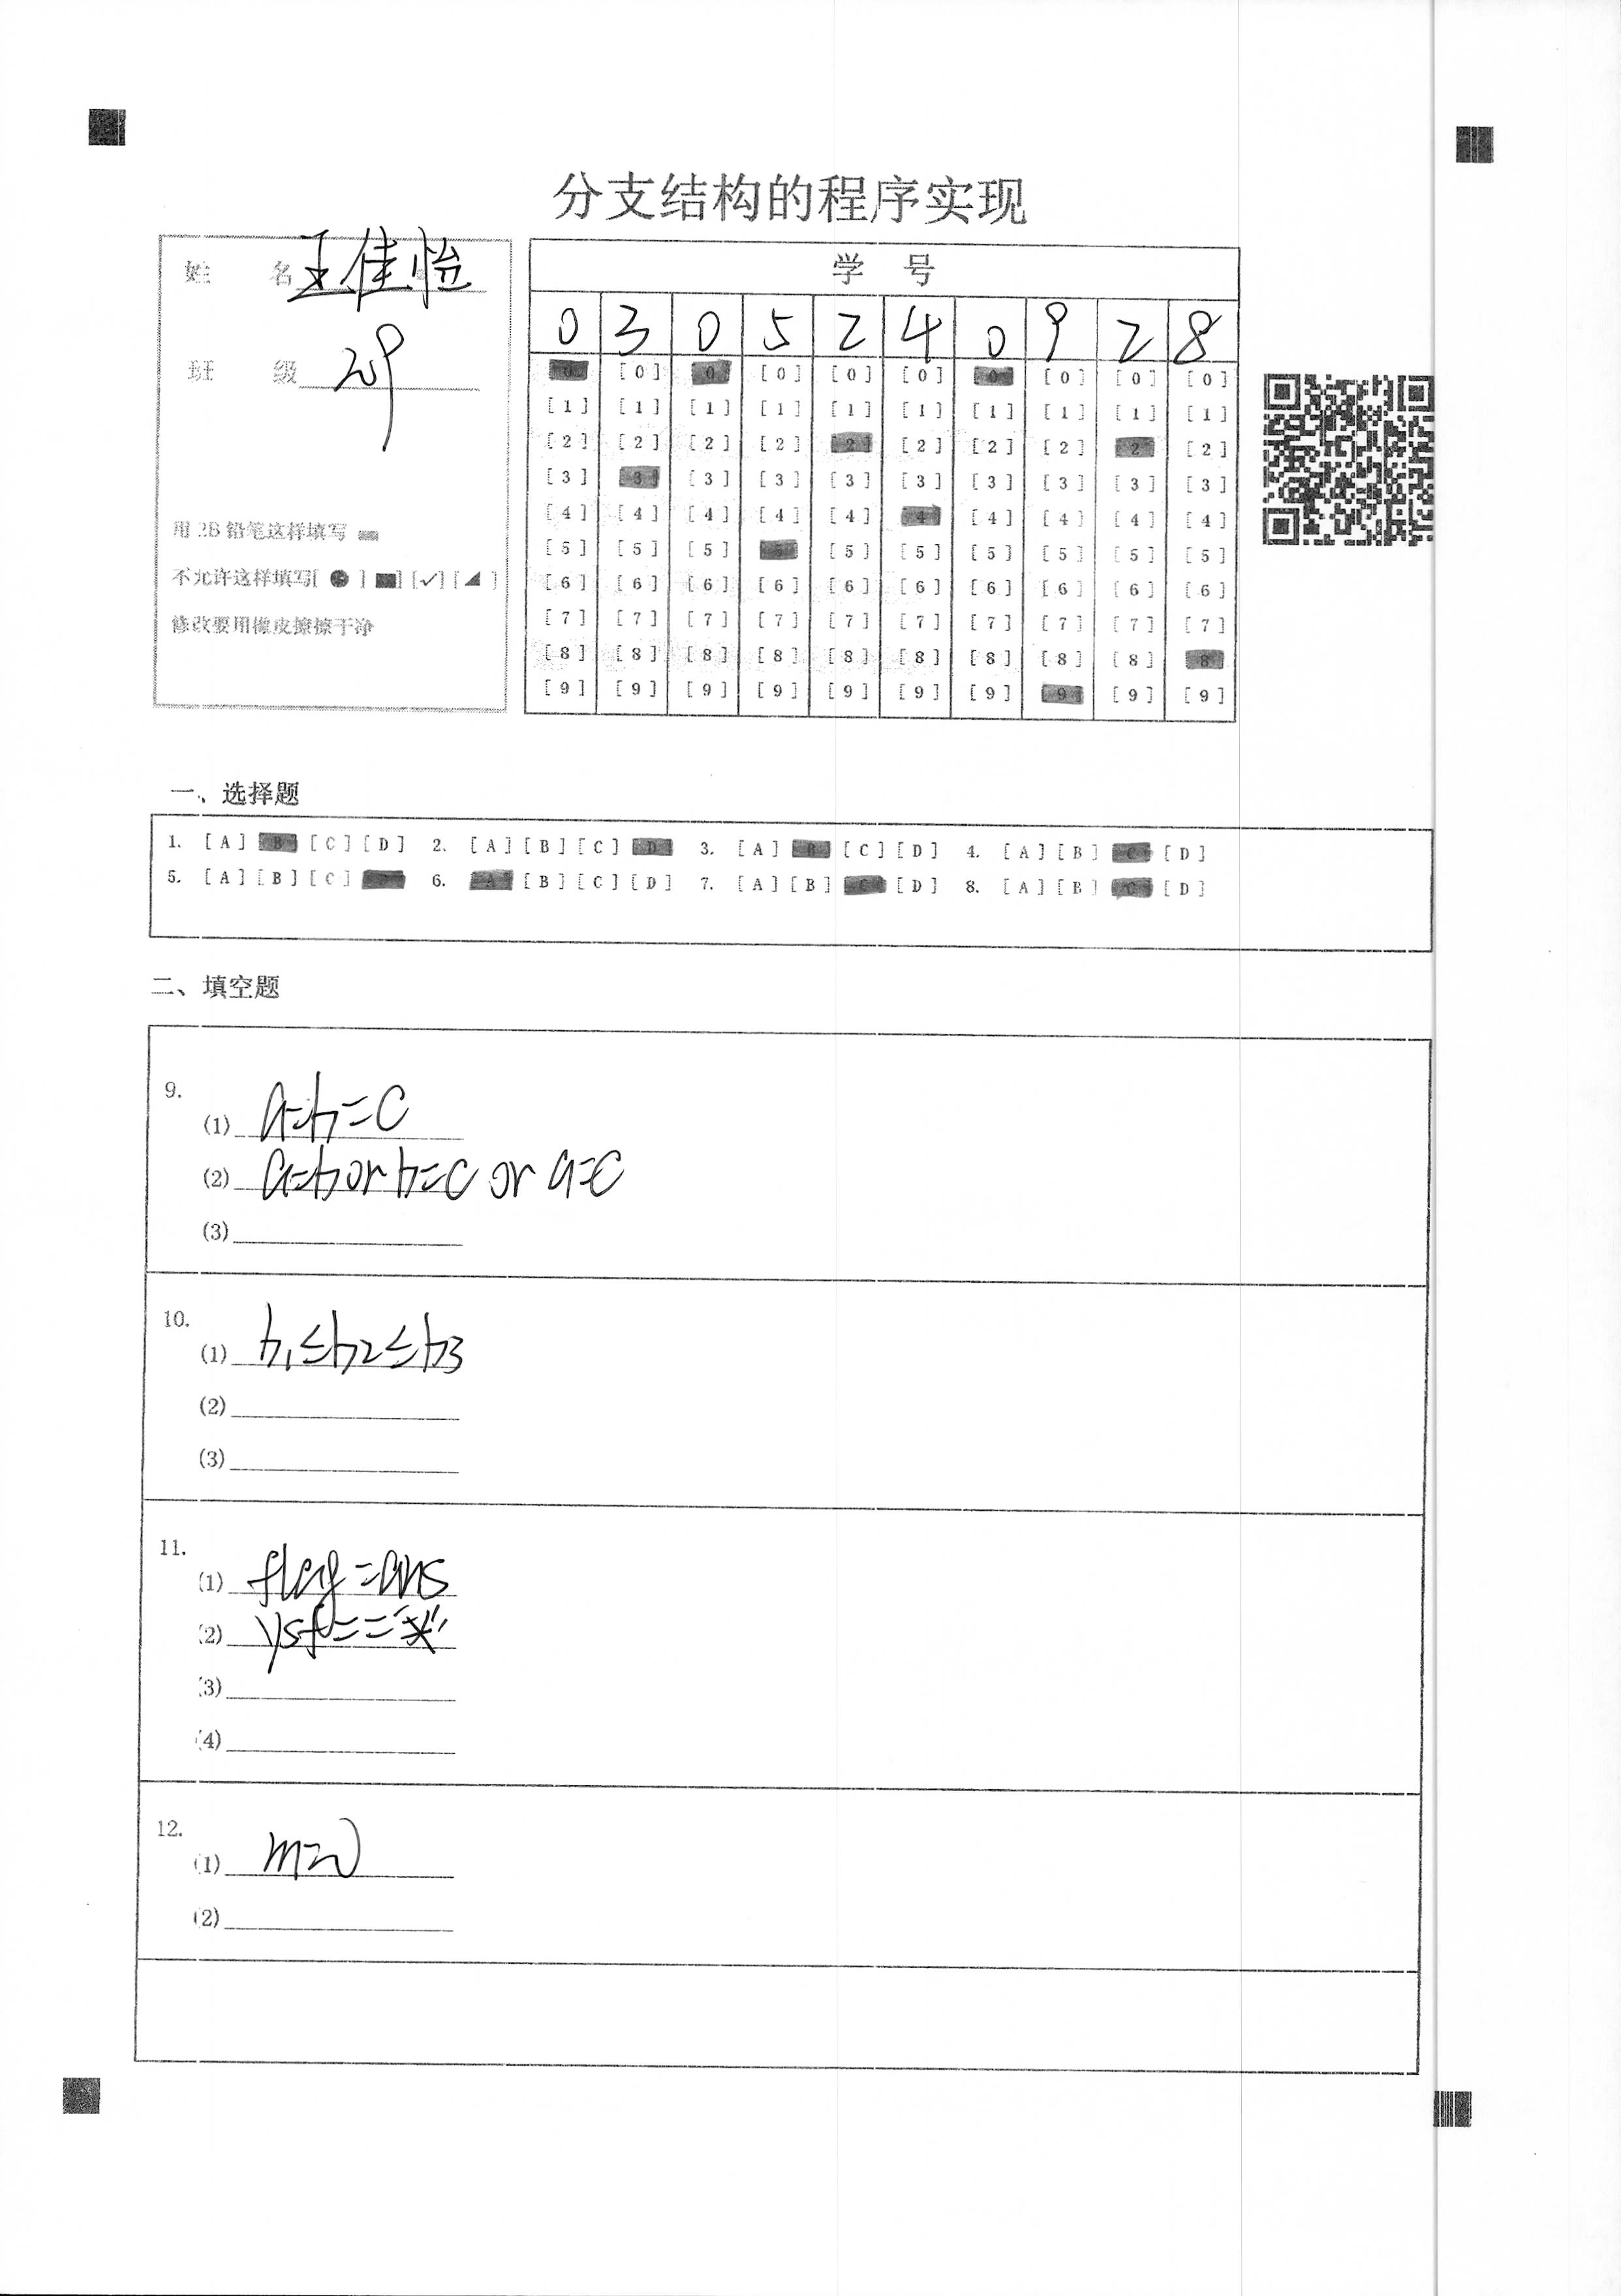 分支结构的程序实现
姓 名 王佳怡
班 级 209
用 2B 铅笔这样填写
不允许这样填写[ ● ] ■] [✓] [◢ ]
修改要用橡皮擦擦干净
学 号
0 3 0 5 2 4 0 9 2 8
[0] [0] [0] [0] [0] [0] [0] [0] [0] [0]
[1] [1] [1] [1] [1] [1] [1] [1] [1] [1]
[2] [2] [2] [2] [2] [2] [2] [2] [2] [2]
[3] [3] [3] [3] [3] [3] [3] [3] [3] [3]
[4] [4] [4] [4] [4] [4] [4] [4] [4] [4]
[5] [5] [5] [5] [5] [5] [5] [5] [5] [5]
[6] [6] [6] [6] [6] [6] [6] [6] [6] [6]
[7] [7] [7] [7] [7] [7] [7] [7] [7] [7]
[8] [8] [8] [8] [8] [8] [8] [8] [8] [8]
[9] [9] [9] [9] [9] [9] [9] [9] [9] [9]
一、选择题
1. [A] [B] [C] [D] 2. [A] [B] [C] [D] 3. [A] [B] [C] [D] 4. [A] [B] [C] [D]
5. [A] [B] [C] [D] 6. [A] [B] [C] [D] 7. [A] [B] [C] [D] 8. [A] [B] [C] [D]
二、填空题
9.
(1) a=b=c
(2) a=b or b=c or a=c
(3)
10.
(1) h1≤h2≤h3
(2)
(3)
11.
(1) flag=ans
(2) ysf=="
(3)
(4)
12.
(1) m=
(2)